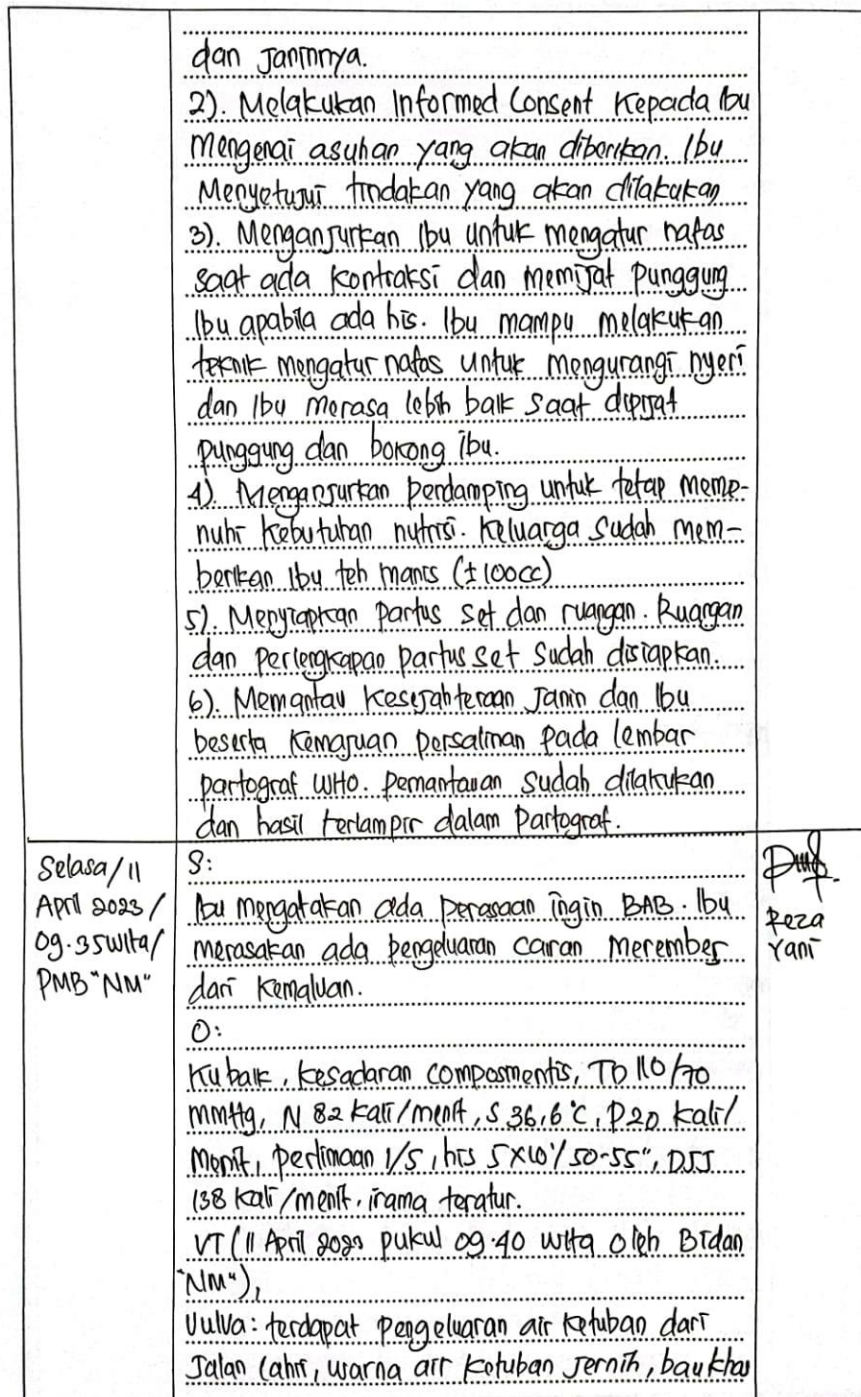 dan Janinnya.
2). Melakukan Informed Consent Kepada Ibu
Mengenai asuhan yang akan diberikan. Ibu
Menyetujui tindakan yang akan dilakukan
3). Menganjurkan Ibu untuk mengatur nafas
saat ada kontraksi dan memijat punggung
Ibu apabila ada his. Ibu mampu melakukan
teknik mengatur nafas untuk mengurangi nyeri
dan Ibu merasa lebih baik saat dipijat
punggung dan bokong ibu.
4). Menganjurkan pendamping untuk tetap meme-
nuhi kebutuhan nutrisi. Keluarga sudah mem-
berikan Ibu teh manis (±100cc)
5). Menyiapkan partus set dan ruangan. Ruangan
dan perlengkapan partus set sudah disiapkan.
6). Memantau Kesejahteraan Janin dan Ibu
beserta kemajuan persalinan pada lembar
partograf WHO. pemantauan sudah dilakukan
dan hasil terlampir dalam partograf.
Selasa/11
April 2023/
09.35 wita/
PMB "NM"
S:
Ibu mengatakan ada perasaan ingin BAB. Ibu
merasakan ada pengeluaran cairan merembes
dari kemaluan.
O:
Ku baik, kesadaran composmentis, TD 110/70
mmHg, N 82 kali/menit, S 36,6°C, P 20 kali/
Menit, perlimaan 1/5, his 5x10'/50-55", DJJ
138 kali/menit, irama teratur.
VT (11 April 2023 pukul 09.40 wita oleh Bidan
"NM"),
Vulva: terdapat pengeluaran air ketuban dari
Jalan lahir, warna air ketuban Jernih, bau khas
Reza
Yani